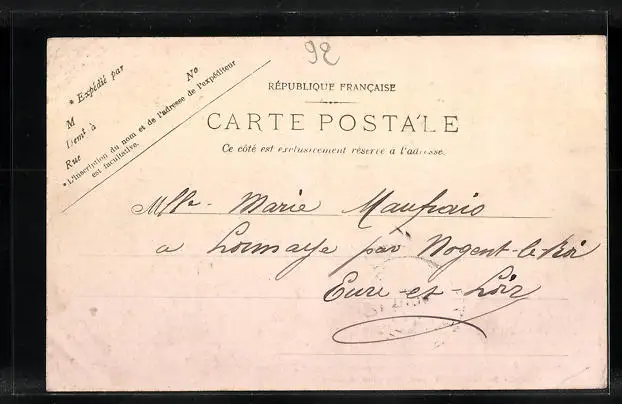 92
* Expédié par
M
Demt à
Rue
No
*L'inscription du nom et de l'adresse de l'expéditeur
est facultative.
RÉPUBLIQUE FRANÇAISE
CARTE POSTALE
Ce côté est exclusivement réservé à l'adresse.
Mlle Marie Maufrais
a Lormaye par Nogent-le-Roi
Eure-et-Loir